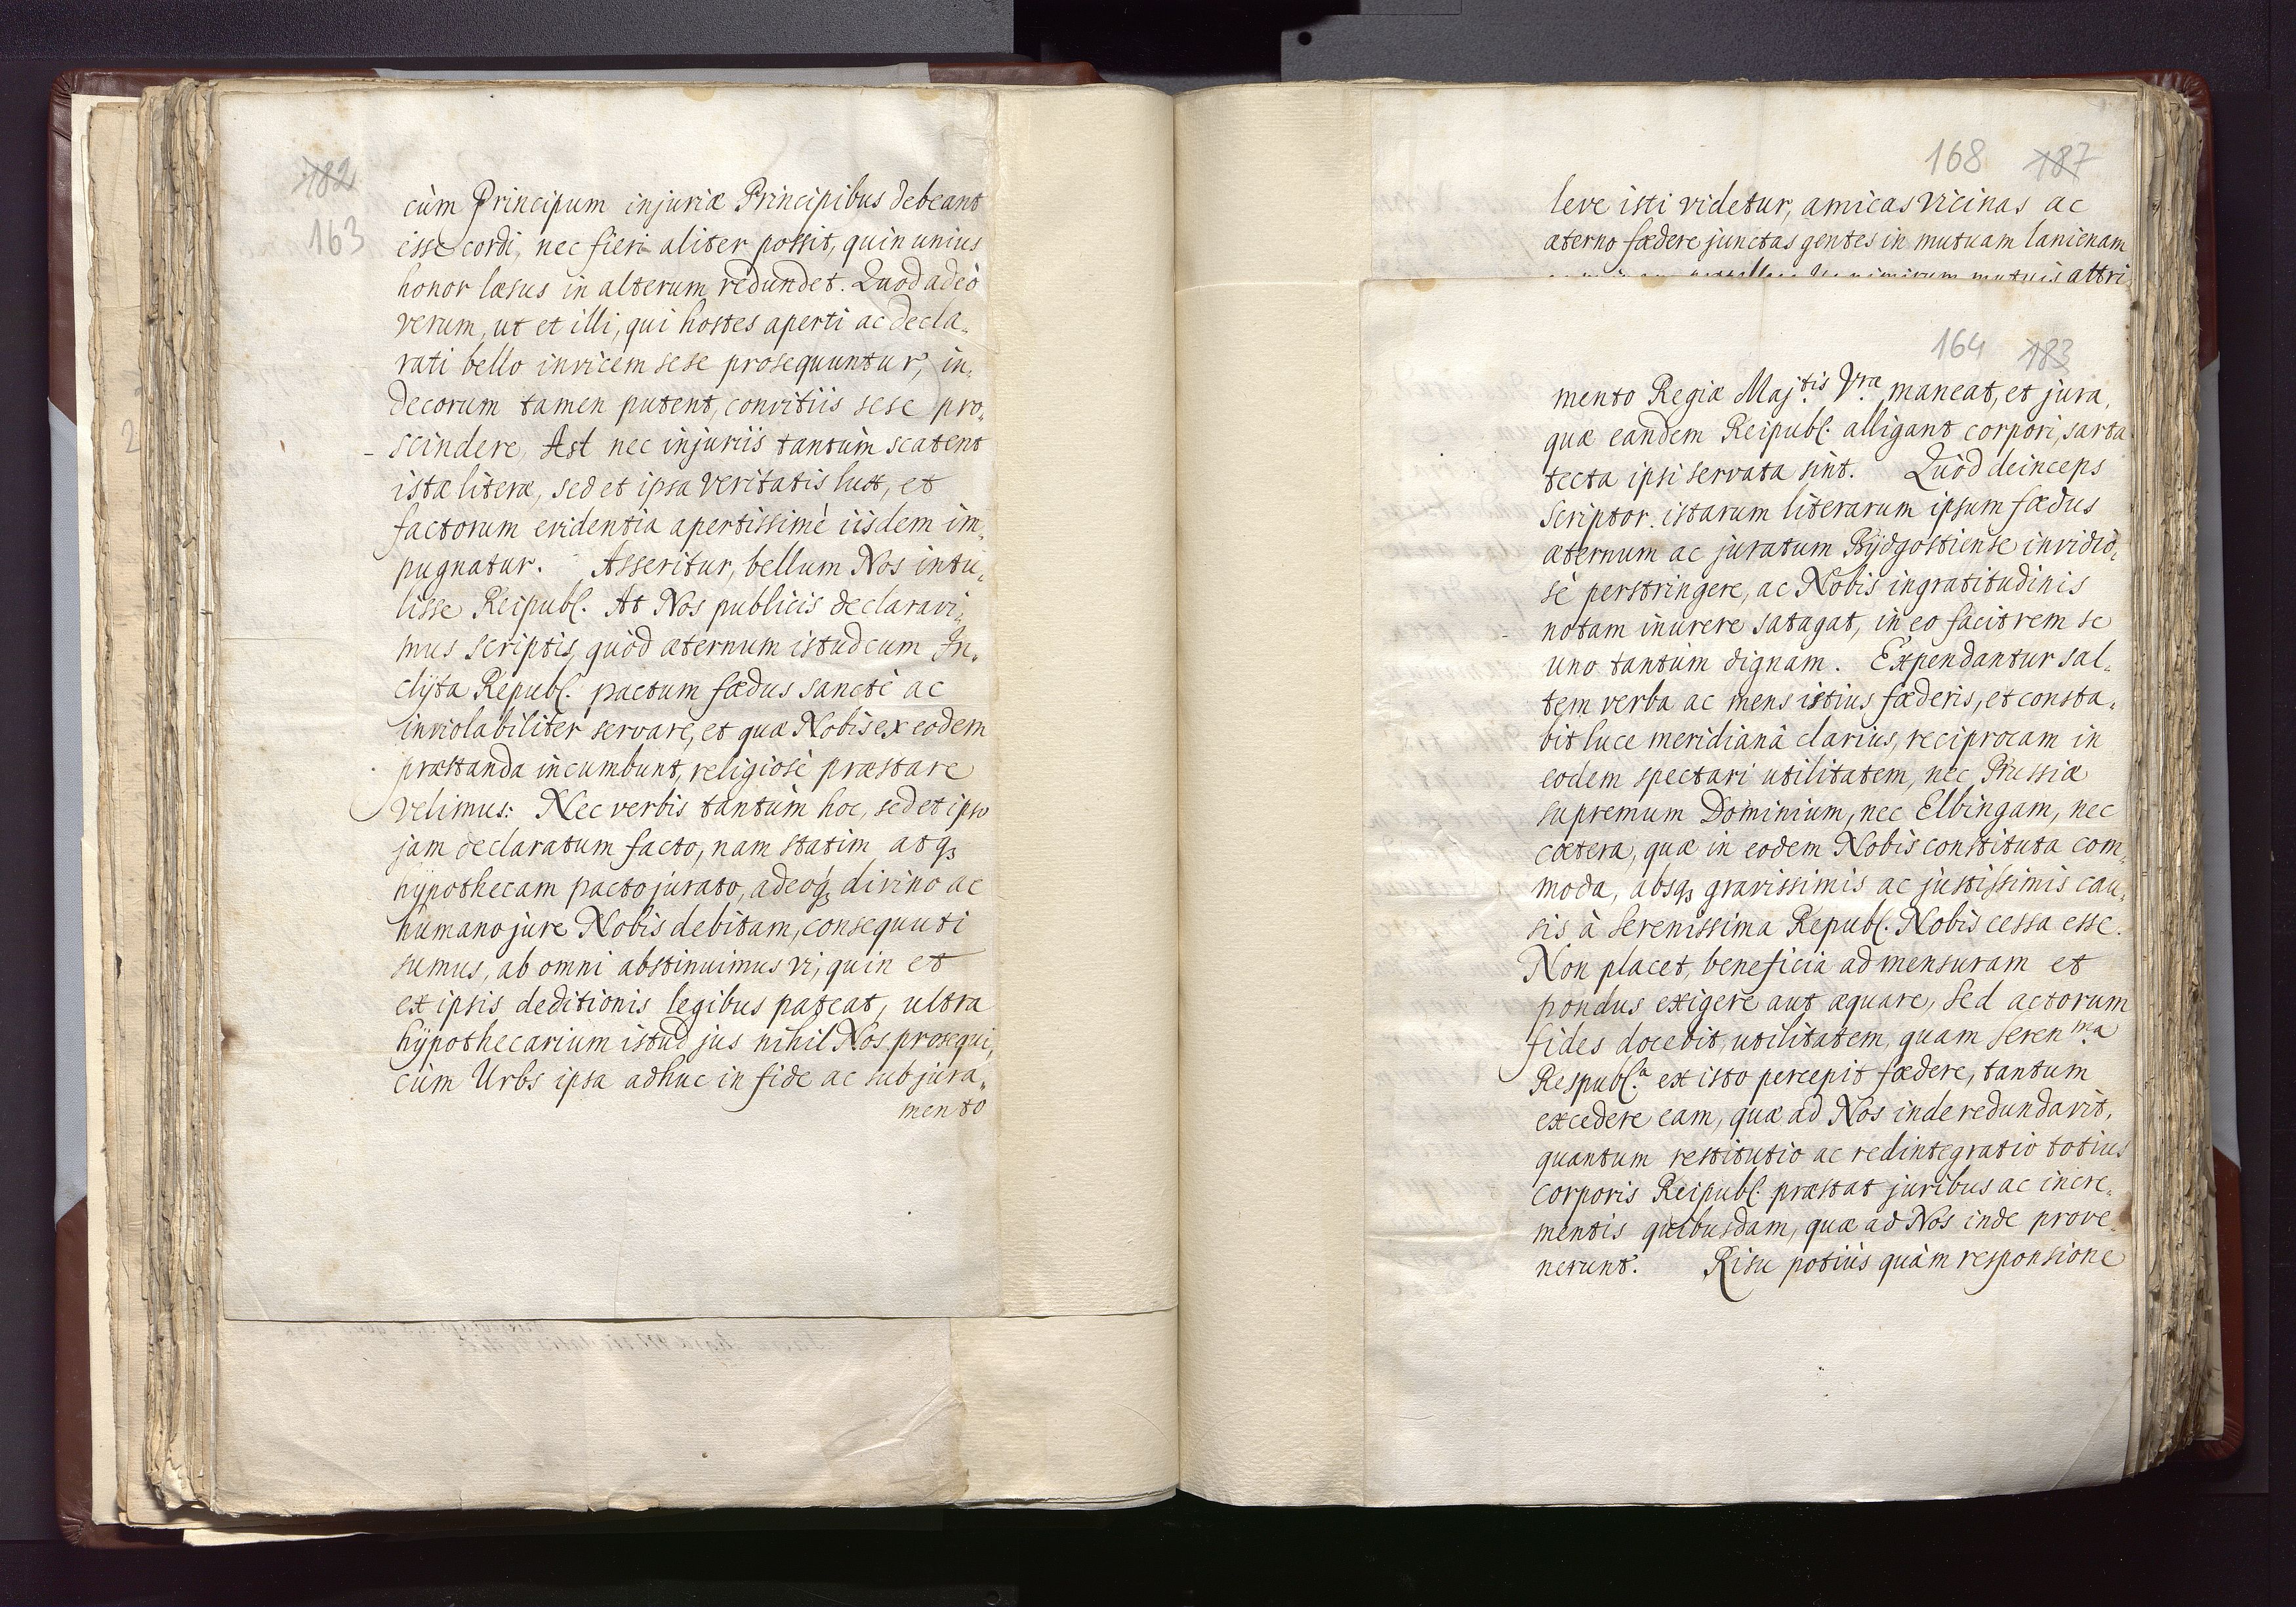 182
163
cùm Principum injuriæ Principibus debeant
esse cordi, nec fieri aliter possit, quin unius
honor læsus in alterum redundet. Quod adeò
verum, ut et illi, qui hostes aperti ac decla„
rati bello invicem sese prosequuntur, in„
decorum tamen putent, convitiis sese pro„
scindere. Ast nec injuriis tantùm scatent
istæ literæ, sed et ipsa veritatis lux, et
factorum evidentia apertissimè iisdem im„
pugnatur. Asseritur, bellum Nos intu„
lisse Reipubl. At Nos publicis declaravi„
mus scriptis, quòd æternum istud cum In„
clÿta Republ. pactum fœdus sanctè ac
inviolabiliter servare, et quæ Nobis ex eodem
præstanda incumbunt, religiosè præstare
velimus: Nec verbis tantùm hoc, sed et ipso
jam declaratum facto, nam statim atq,
hÿpothecam pacto jurato, adeoq, divino ac
humano jure Nobis debitam, consequuti
sumus, ab omni abstinuimus vi, quin et
ex ipsis deditionis legibus pateat, ultra
hÿpothecarium istud jus nihil Nos prosequi,
cùm Urbs ipsa adhuc in fide ac sub jura„
mento
168 187
leve isti videtur, amicas vicinas ac
æterno fœdere junctas gentes in mutuam lanienam
nimirum mutuis attri
164 183
mento Regiæ Maj.tis V.ræ maneat, et jura,
quæ eandem Reipubl. alligant corpori, sarta
tecta ipsi servata sint. Quòd deinceps
scriptor istarum literarum ipsum fœdus
æternum ac juratum Bÿdgostiense invidiò„
sè perstringere, ac Nobis ingratitudinis
notam inurere satagat, in eo facit rem se
uno tantùm dignam. Expendantur sal„
tem verba ac mens istius fœderis, et consta„
bit luce meridianâ clarius, reciprocam in
eodem spectari utilitatem, nec Prussiæ
supremum Dominium, nec Elbingam, nec
cætera, quæ in eodem Nobis constituta com„
moda, absq, gravissimis ac justissimis cau„
sis à Serenissima Republ. Nobis cessa esse.
Non placet, beneficia ad mensuram et
pondus exigere aut æquare, sed actorum
fides docebit, utilitatem, quam Seren.ma
Respubl.a ex isto percepit fœdere, tantum
excedere eam, quæ ad Nos inde redundavit,
quantum restitutio ac redintegratio totius
corporis Reipubl. præstat juribus ac incre„
mentis quibusdam, quæ ad Nos inde prove„
nerunt. Risu potiùs quàm responsione